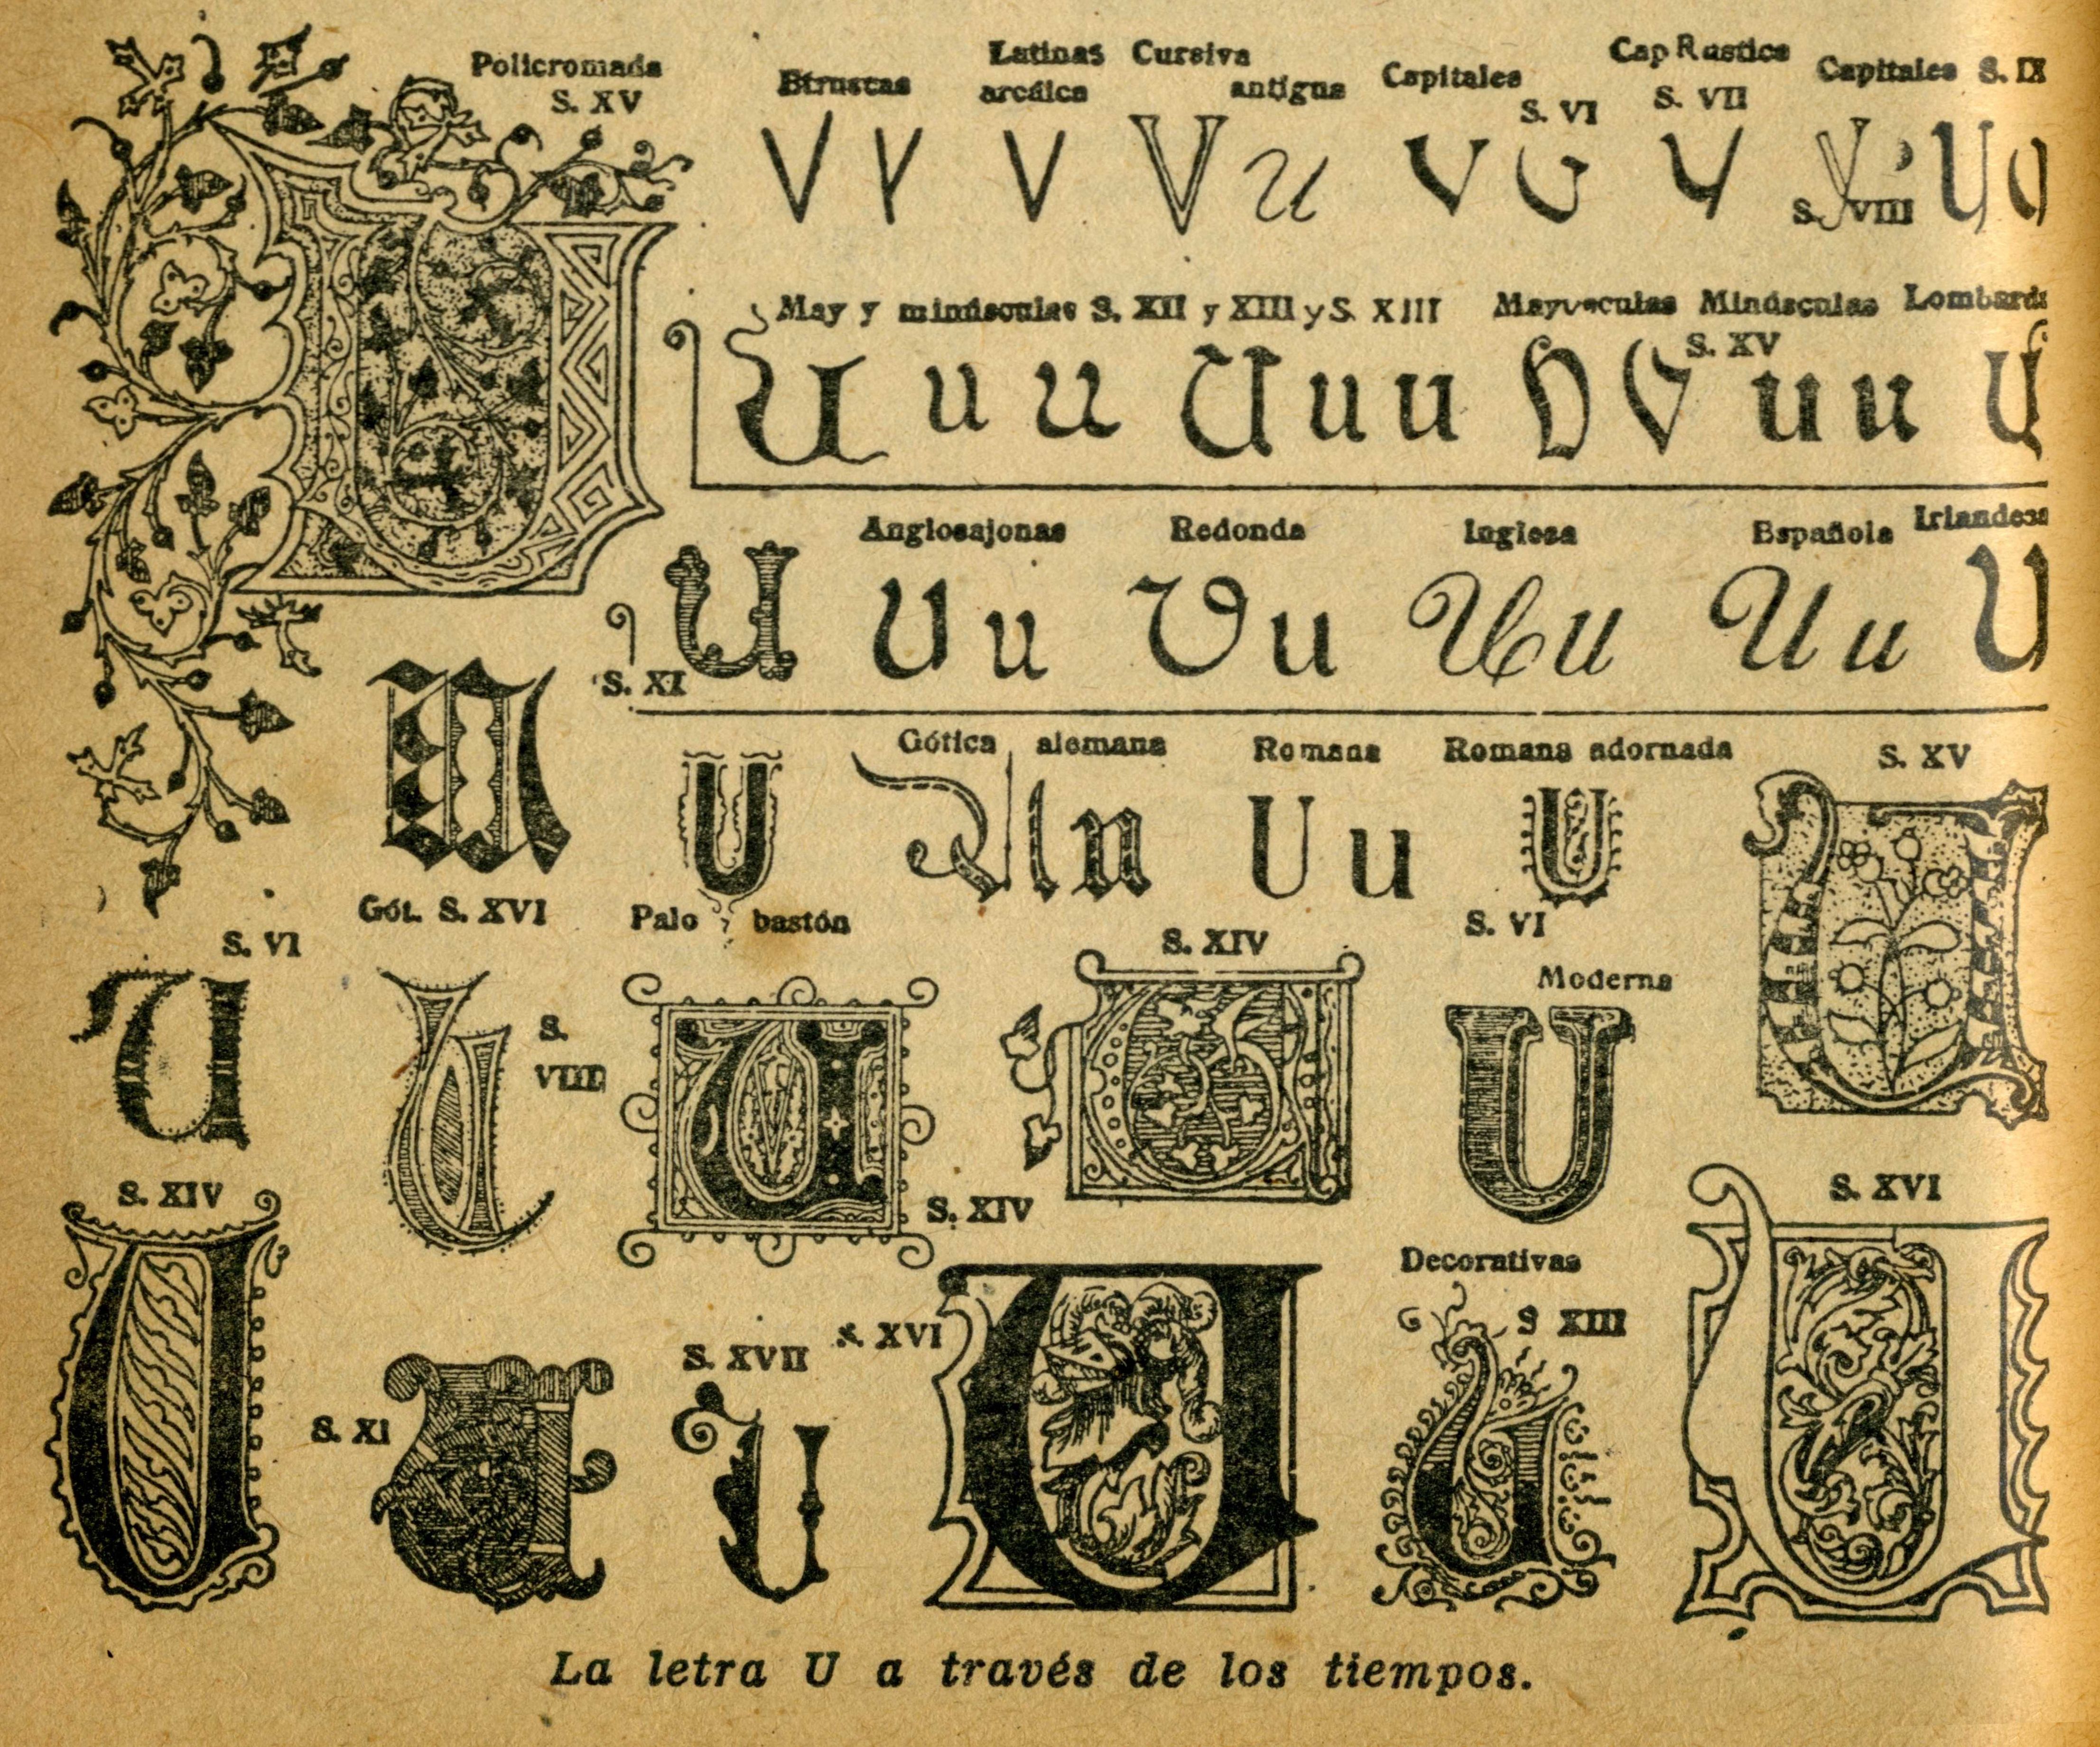 Policromada
S. XV
Etruscas
Latinas
arcáica
Cursiva
antigua
Capitales
S. VI
Cap Rustica
S. VII
Capitales S. IX
S. VIII
V V V V u V U V U
May y minúsculas S. XII y XIII y S. XIII
Mayusculas Minúsculas
S. XV
Lombarda
U u u U u u U V u u U
Anglosajonas
Redonda
Inglesa
Española
Irlandesa
U U u U u U u U u U
S. XI
Gótica alemana
Romana
Romana adornada
S. XV
U U U u U u U
Gót. S. XVI
Palo y bastón
S. VI
S. VI
S. XIV
Moderna
S.
VIII
S. XIV
S. XIV
S. XVI
Decorativas
S XIII
S. XI
S. XVII
S. XVI
La letra U a través de los tiempos.